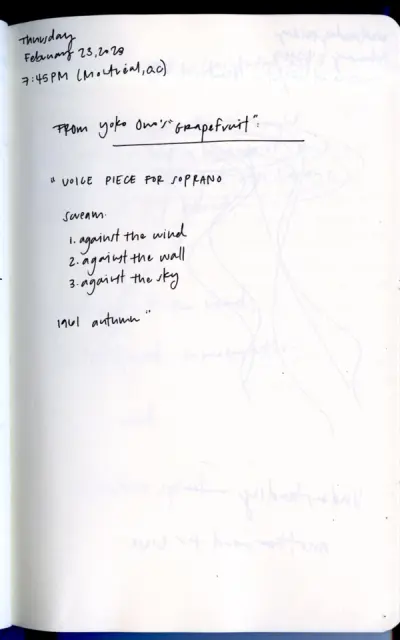 Thursday
February 23, 2023
7:45PM (Montréal, QC)
From Yoko Ono's "Grapefruit":
"VOICE PIECE FOR SOPRANO
Scream.
1. against the wind
2. against the wall
3. against the sky
1961 autumn"